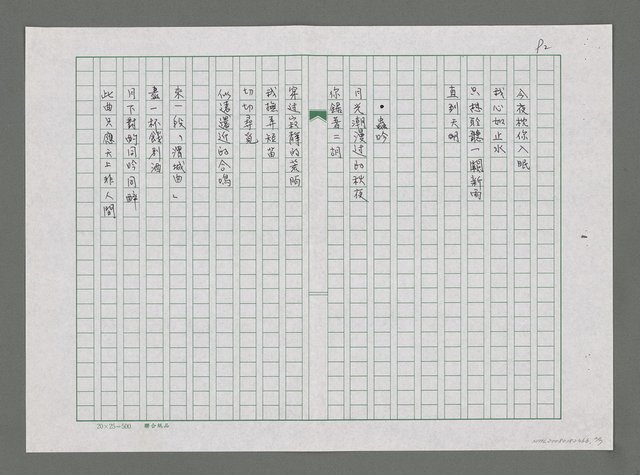 P2
今夜枕你入眠
我心如止水
只想聆聽一闕新雨
直到天明
•蟲吟
月光潮漫过的秋夜
你鋸著二胡
穿过寂靜的荒陌
我撫弄短笛
切切尋覓
似遠還近的合鳴
來一段「渭城曲」
盡一杯餞別酒
月下對酌同吟同醉
此曲只應天上非人間
20×25=500 聯合紙品